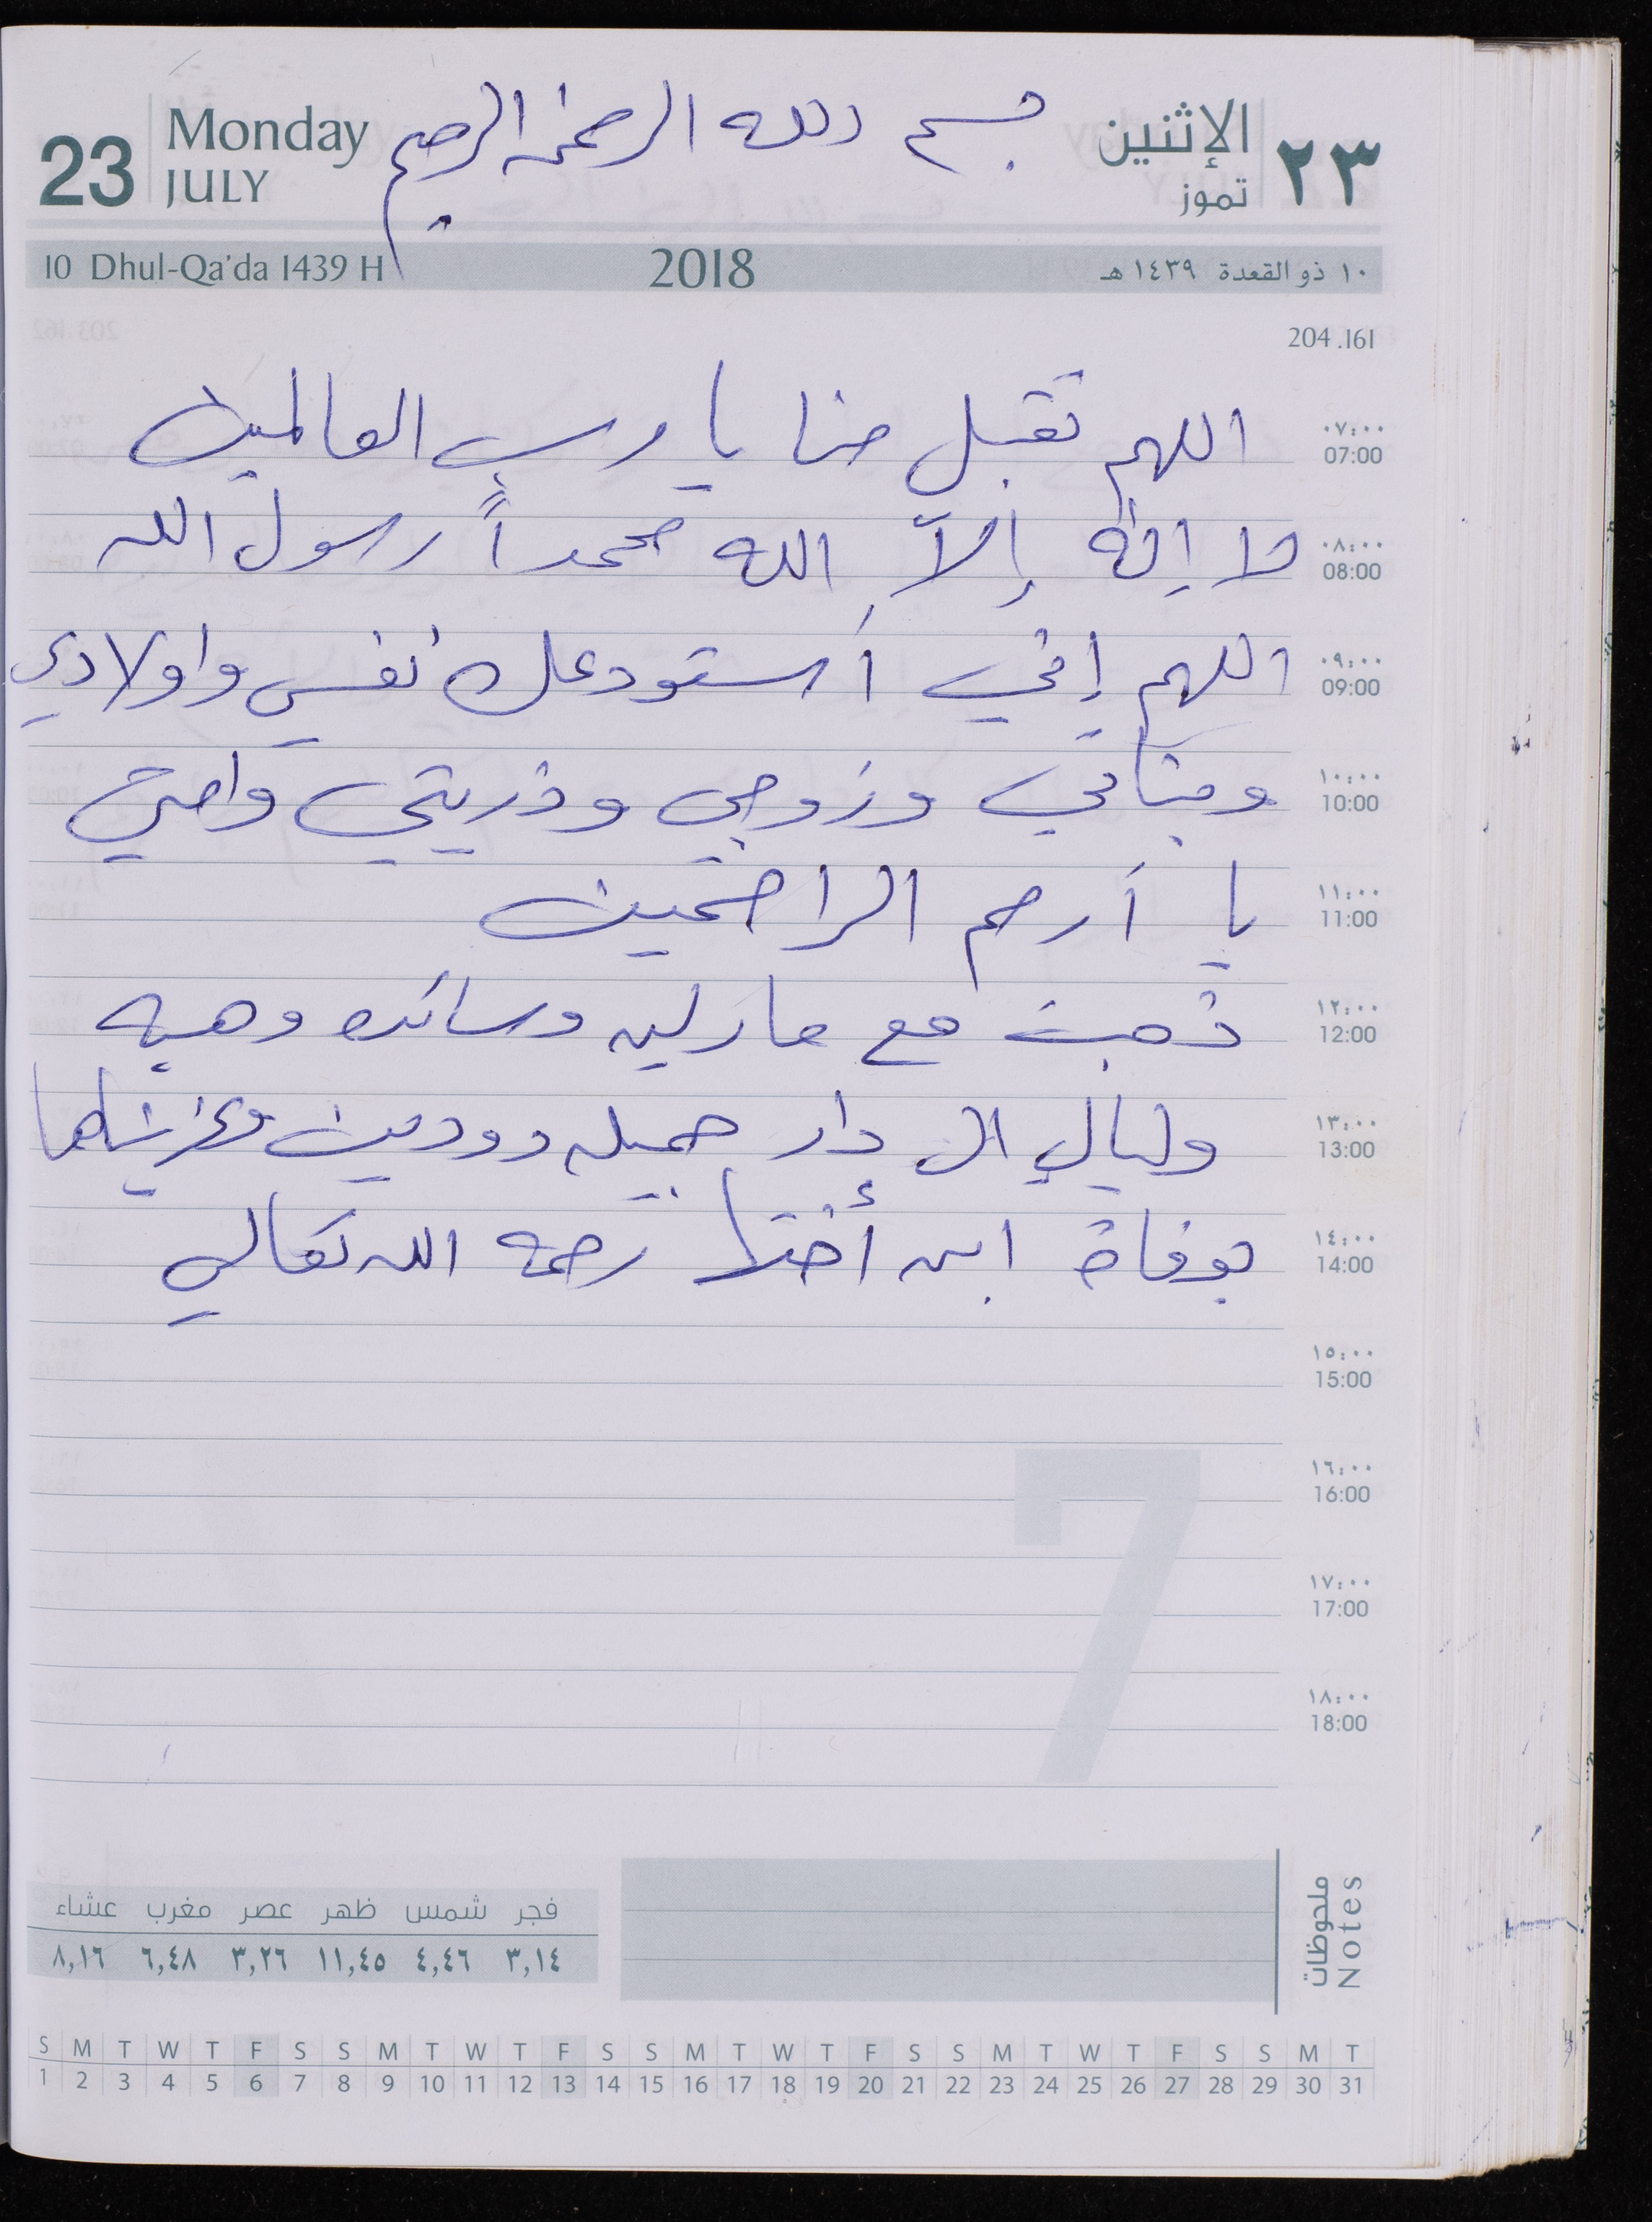 23 Monday JULY بسم الله الرحمن الرحيم الإثنين تموز ٢٣
10 Dhul-Qa'da 1439 H 2018 ١٠ ذو القعدة ١٤٣٩ هـ
204 .161
٠٧:٠٠
07:00 اللهم تقبل منا يا رب العالمين
٠٨:٠٠
08:00 لا اله إلاّ الله محمداً رسول الله
٠٩:٠٠
09:00 اللهم إني أستودعك نفسي واولادي
١٠:٠٠
10:00 وبناتي وزوجي وذريتي وامي
١١:٠٠
11:00 يا أرحم الراحمين
١٢:٠٠
12:00 ذهبت مع مارلين وسائده وهبه
١٣:٠٠
13:00 وليالي الى دار جميله وودين وعزيناهما
١٤:٠٠
14:00 بوفاة ابن أختها رحمه الله تعالى
١٥:٠٠
15:00
١٦:٠٠
16:00
7
١٧:٠٠
17:00
١٨:٠٠
18:00
ملحوظات
Notes
فجر شمس ظهر عصر مغرب عشاء
٣,١٤ ٤,٤٦ ١١,٤٥ ٣,٢٦ ٦,٤٨ ٨,١٦
S M T W T F S S M T W T F S S M T W T F S S M T W T F S S M T
1 2 3 4 5 6 7 8 9 10 11 12 13 14 15 16 17 18 19 20 21 22 23 24 25 26 27 28 29 30 31